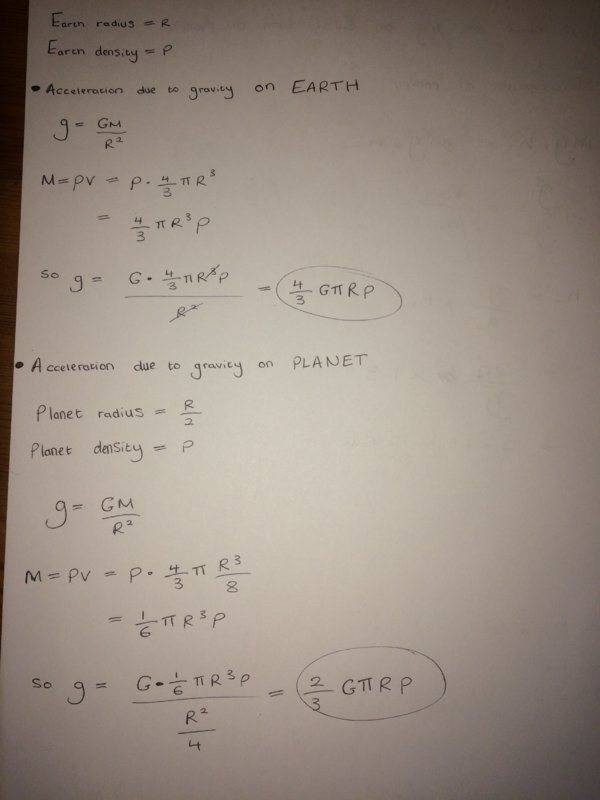 Earth radius = R
Earth density = ρ
• Acceleration due to gravity on EARTH
g = GM/R²
M = ρV = ρ · 4/3 π R³
= 4/3 π R³ ρ
So g = G · 4/3 π R³ ρ / R² = 4/3 G π R ρ
• Acceleration due to gravity on PLANET
Planet radius = R/2
Planet density = ρ
g = GM/R²
M = ρV = ρ · 4/3 π R³/8
= 1/6 π R³ ρ
So g = G · 1/6 π R³ ρ / R²/4 = 2/3 G π R ρ